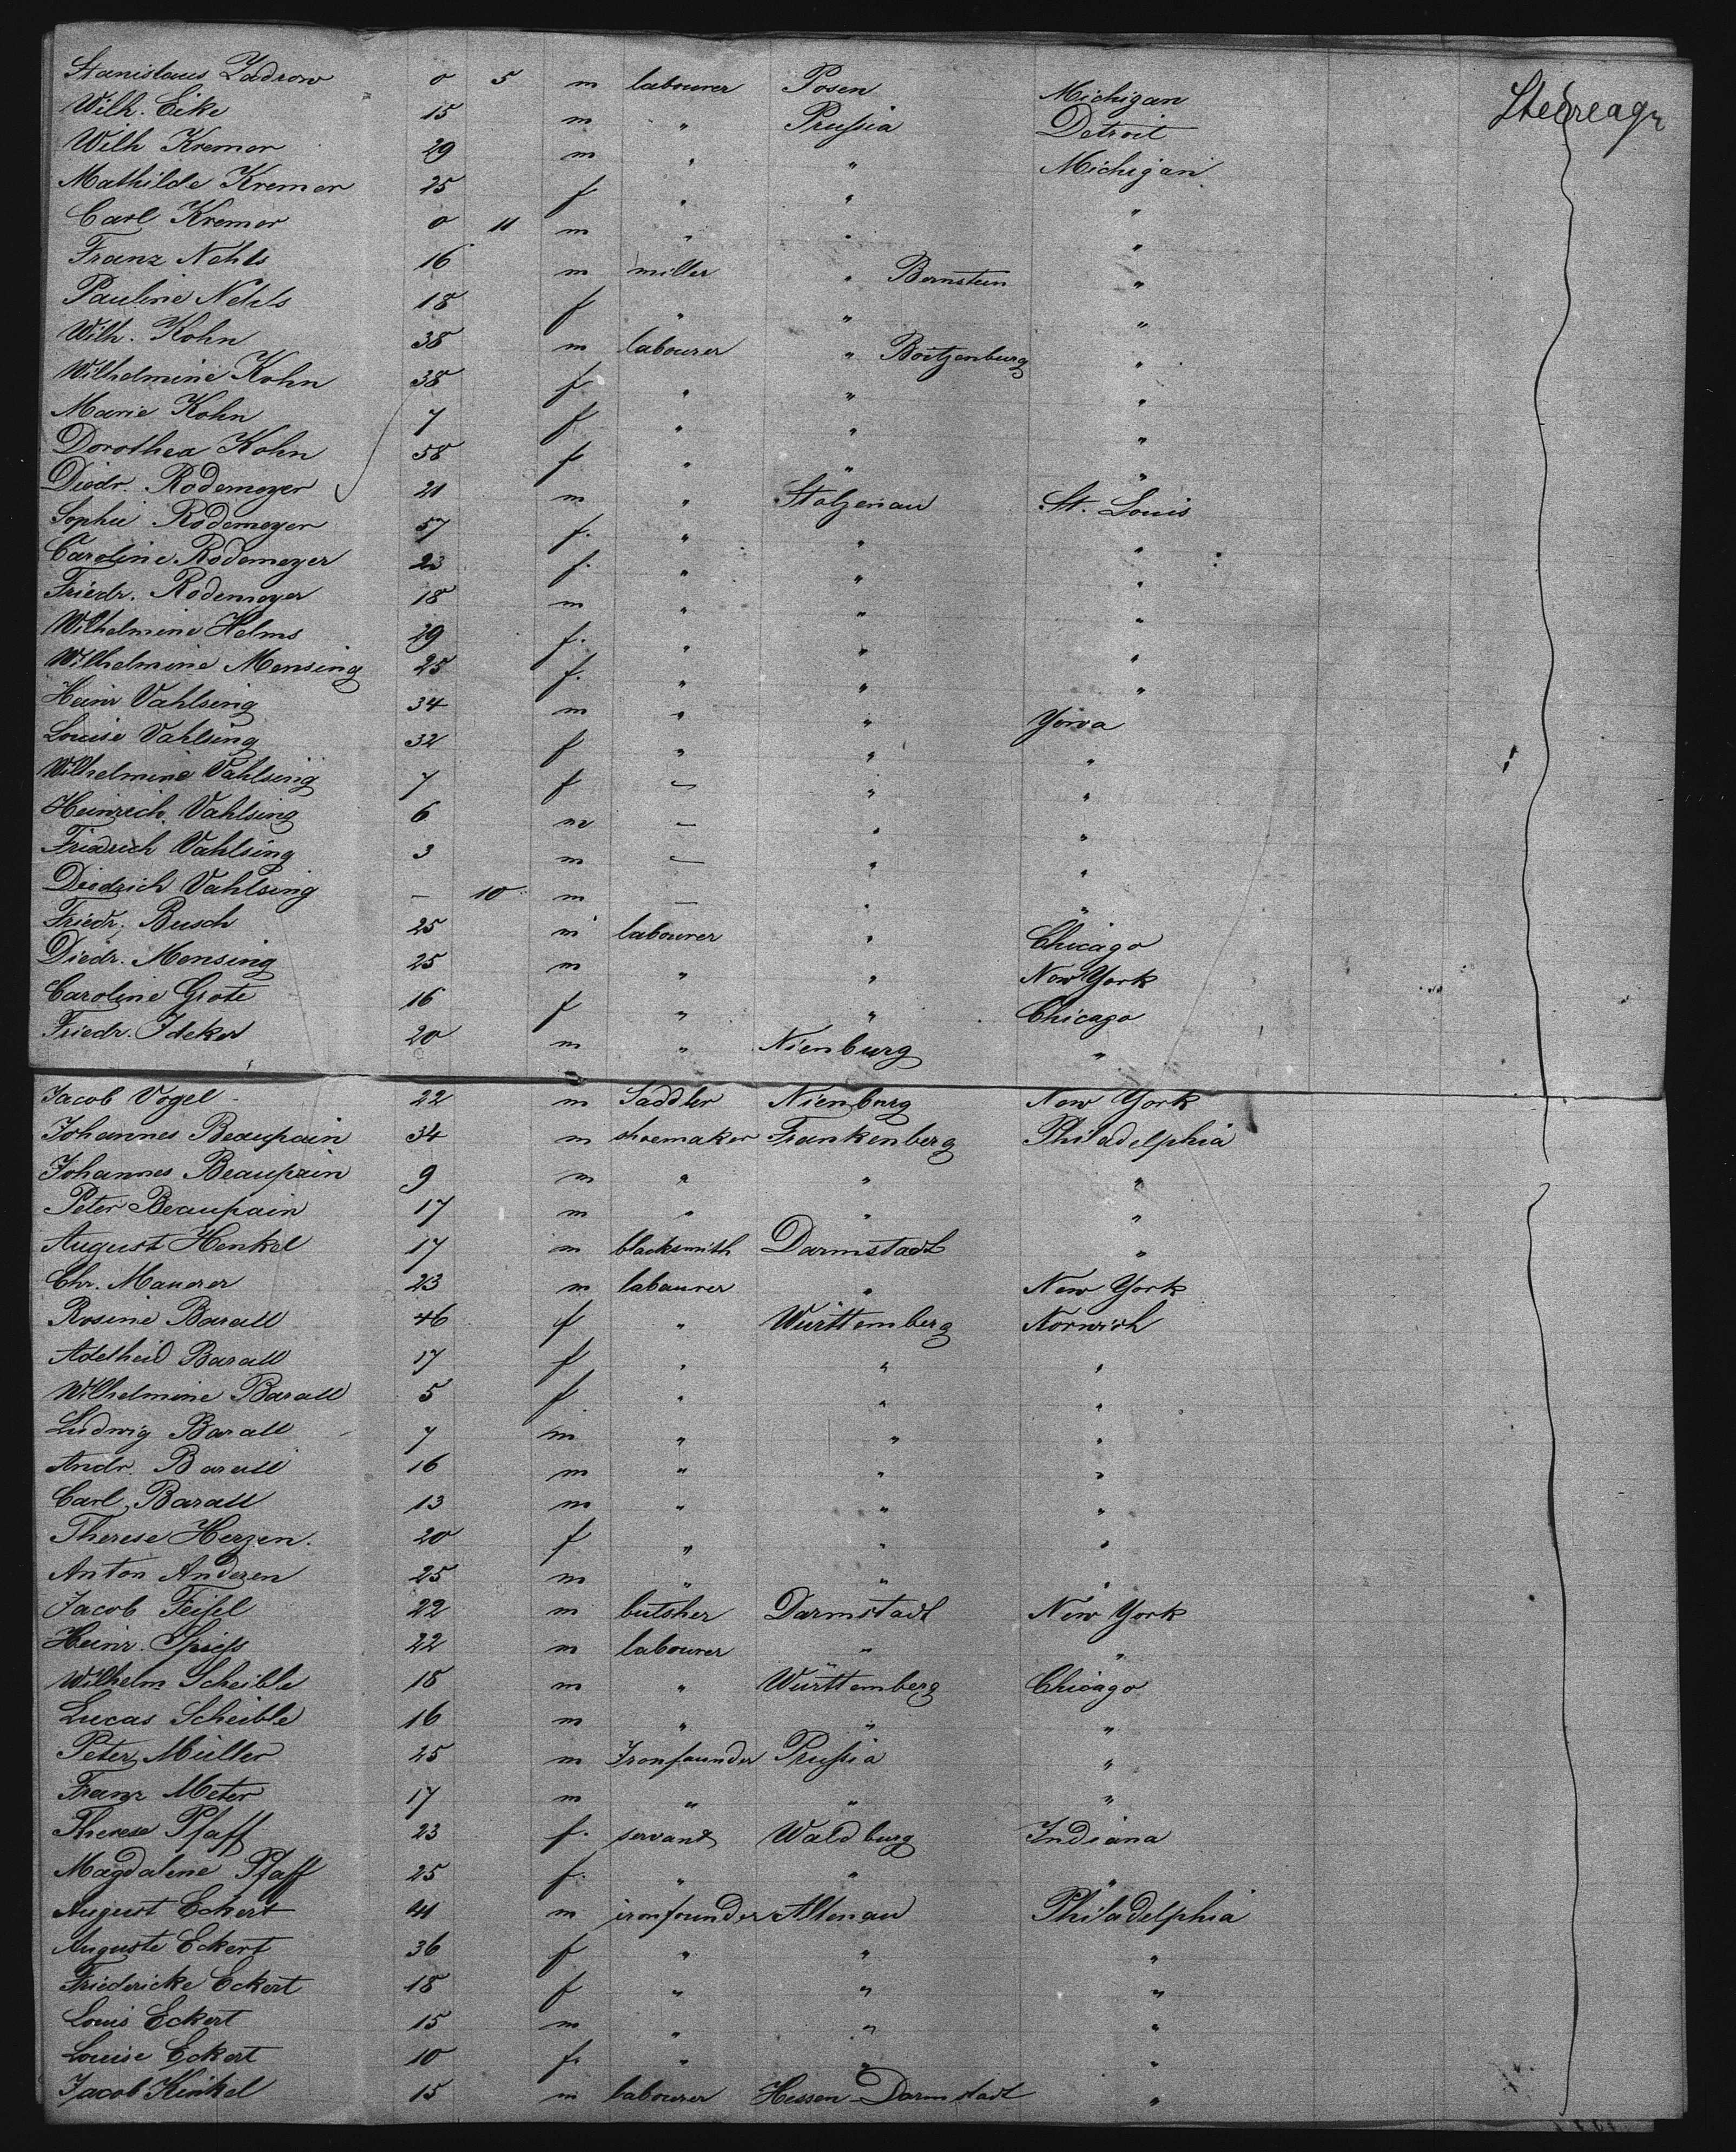 Stanislaus Zadrow 0 5 m labourer Posen Michigan Steerage
Wilh. Eike 15 m " Prußia Detroit
Wilh Kremer 29 m " " Michigan
Mathilde Kremer 25 f " " "
Carl Kremer 0 11 m " " "
Franz Nehls 16 m miller " Bernstein "
Pauline Nehls 18 f " " "
Wilh. Kohn 38 m labourer " Boitzenburg "
Wilhelmine Kohn 38 f " " "
Marie Kohn 7 f " " "
Dorothea Kohn 58 f " " "
Diedr. Rodemeyer 21 m " Stolzenau St. Louis
Sophie Rodemeyer 57 f. " " "
Caroline Rodemeyer 23 f. " " "
Friedr. Rodemeyer 18 m " " "
Wilhelmine Helms 29 f. " " "
Wilhelmine Mensing 25 f. " " "
Heinr Vahlsing 34 m " " Yowa
Louise Vahlsing 32 f " " "
Wilhelmine Vahlsing 7 f – " "
Heinrich Vahlsing 6 m – " "
Friedrich Vahlsing 3 m – " "
Diedrich Vahlsing – 10 m – " "
Friedr. Busch 25 m labourer " Chicago
Diedr. Mensing 25 m " " New York
Caroline Grote 16 f " " Chicago
Friedr. Ideker 20 m " Nienburg "
Jacob Vogel 22 m Saddler Nienburg New York
Johannes Beaupain 34 m shoemaker Frankenberg Philadelphia
Johannes Beaupain 9 m " " "
Peter Beaupain 17 m " " "
August Henkel 17 m blacksmith Darmstadt "
Chr. Maurer 23 m labaurer " New York
Rosine Barall 46 f " Württemberg Norwich
Adelheid Barall 17 f " " "
Wilhelmine Barall 5 f " " "
Ludwig Barall 7 m " " "
Andr. Barall 16 m " " "
Carl Barall 13 m " " "
Therese Herzen. 20 f " " "
Anton Anderen 25 m " " "
Jacob Feißel 22 m butsher Darmstadt New York
Heinr. Spieß 22 m labourer " "
Wilhelm Scheible 18 m " Württemberg Chicago
Lucas Scheible 16 m " " "
Peter Müller 25 m Ironfaunder Prußia "
Franz Meter 17 m " " "
Therese Pfaff 23 f. servant Waldburg Indiana
Magdalene Pfaff 25 f. " " "
August Eckert 41 m ironfounder Altenau Philadelphia
Auguste Eckert 36 f " " "
Friedericke Eckert 18 f " " "
Louis Eckert 15 m " " "
Louise Eckert 10 f. " " "
Jacob Kinkel 15 m labourer Hessen-Darmstadt "